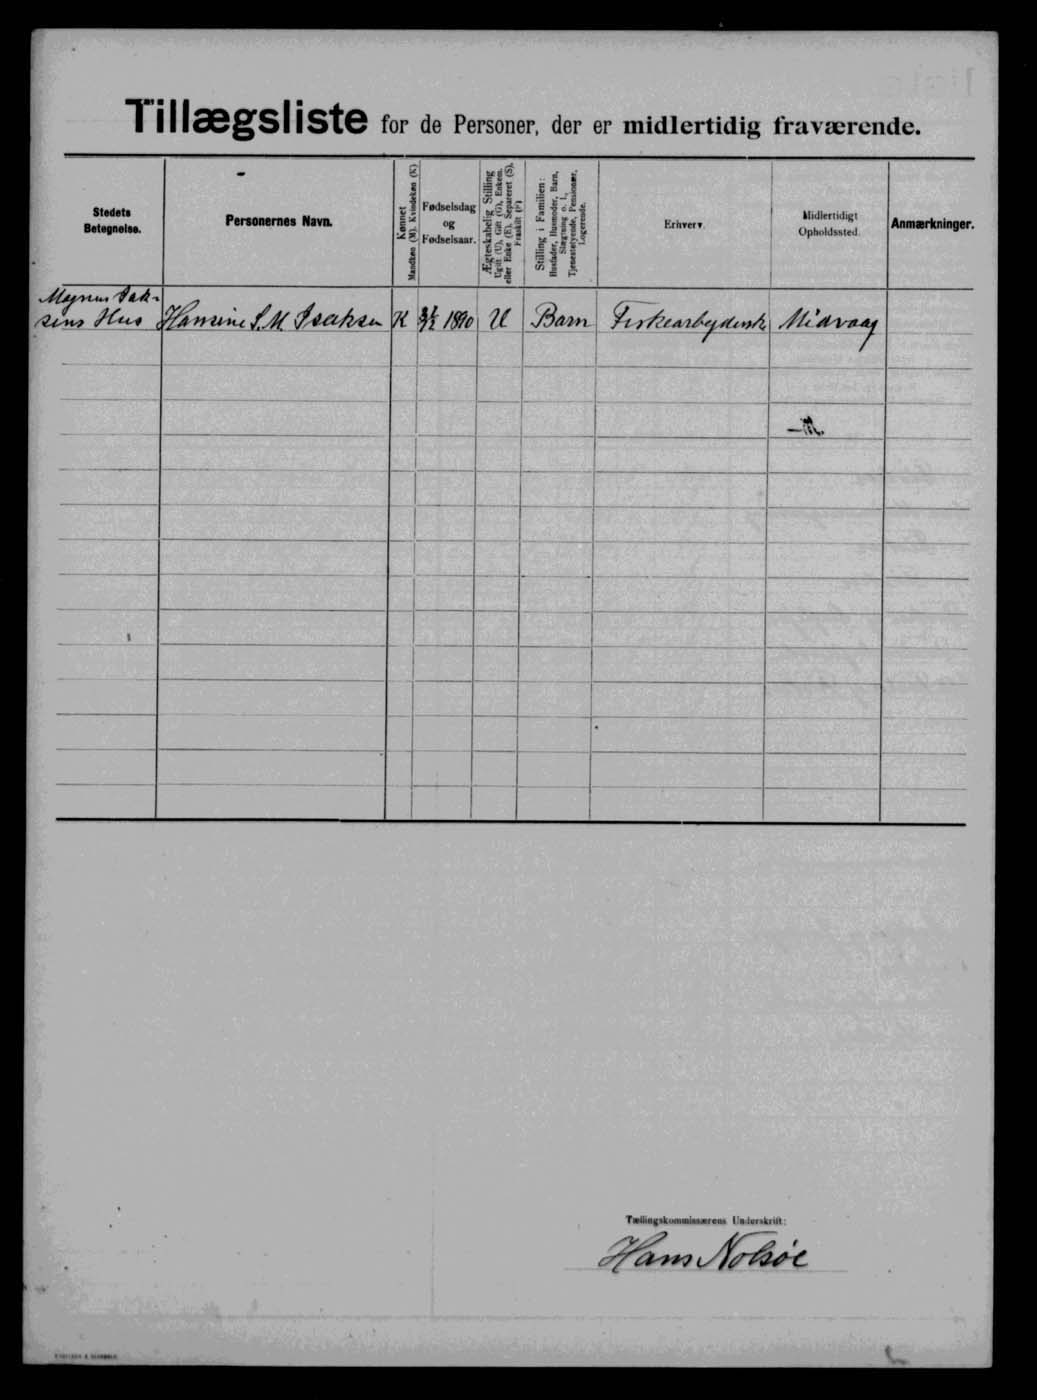 Tillægsliste for de Personer, der er midlertidig fraværende.
Stedets
Betegnelse.
Personernes Navn.
Kønnet
Mandkøn (M). Kvindekøn (K)
Fødselsdag
og
Fødselsaar.
Ægteskabelig Stilling
Ugift (U), Gift (G), Enkem.
eller Enke (E), Separeret (S),
Fraskilt (F)
Stilling i Familien:
Husfader, Husmoder, Barn,
Slægtning o. l.,
Tjenestetyende, Pensionær,
Logerende.
Erhverv.
Midlertidigt
Opholdssted.
Anmærkninger.
Magnus Isak-
sens Hus Hansine S. M Isaksen K 1890 U Barn Fiskearbejderske Midvaag
Tællingskommissærens Underskrift:
Hans Nolsøe